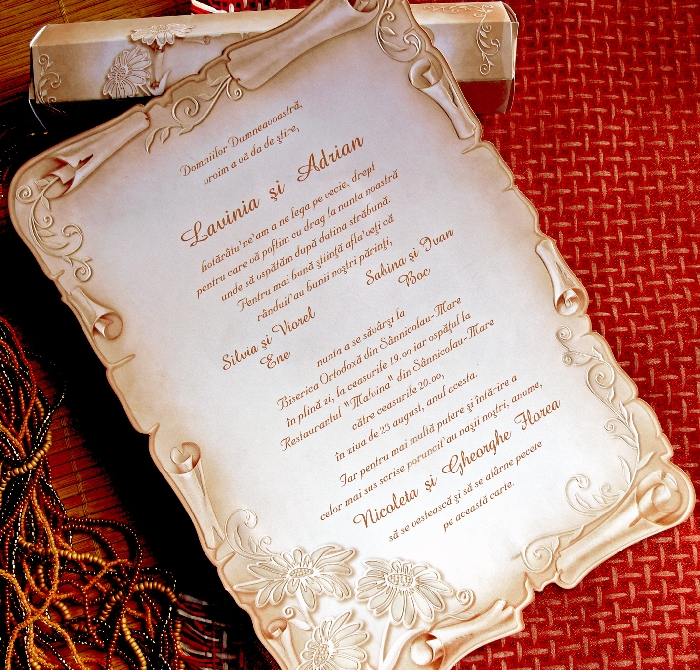 Domniilor Dumneavoastră,
vroim a vă da de știre,
Lavinia și Adrian
hotărâtu'ne'am a ne lega pe vecie, drept
pentru care vă poftim cu drag la nunta noastră
unde să ospătăm după datina străbună.
Pentru mai bună știință afla'veți că
rânduit'au bunii noștri părinți,
Silvia și Viorel
Ene
Sabina și Ivan
Boc
nunta a se săvârși la
Biserica Ortodoxă din Sânnicolau-Mare
în plină zi, la ceasurile 19.00 iar ospățul la
Restaurantul "Malvina" din Sânnicolau-Mare
către ceasurile 20.00,
în ziua de 23 august, anul acesta.
Iar pentru mai multă putere și întă-rire a
celor mai sus scrise poruncit'au nașii noștri, anume,
Nicoleta și Gheorghe Florea
să se vestească și să se atârne pecete
pe această carte.